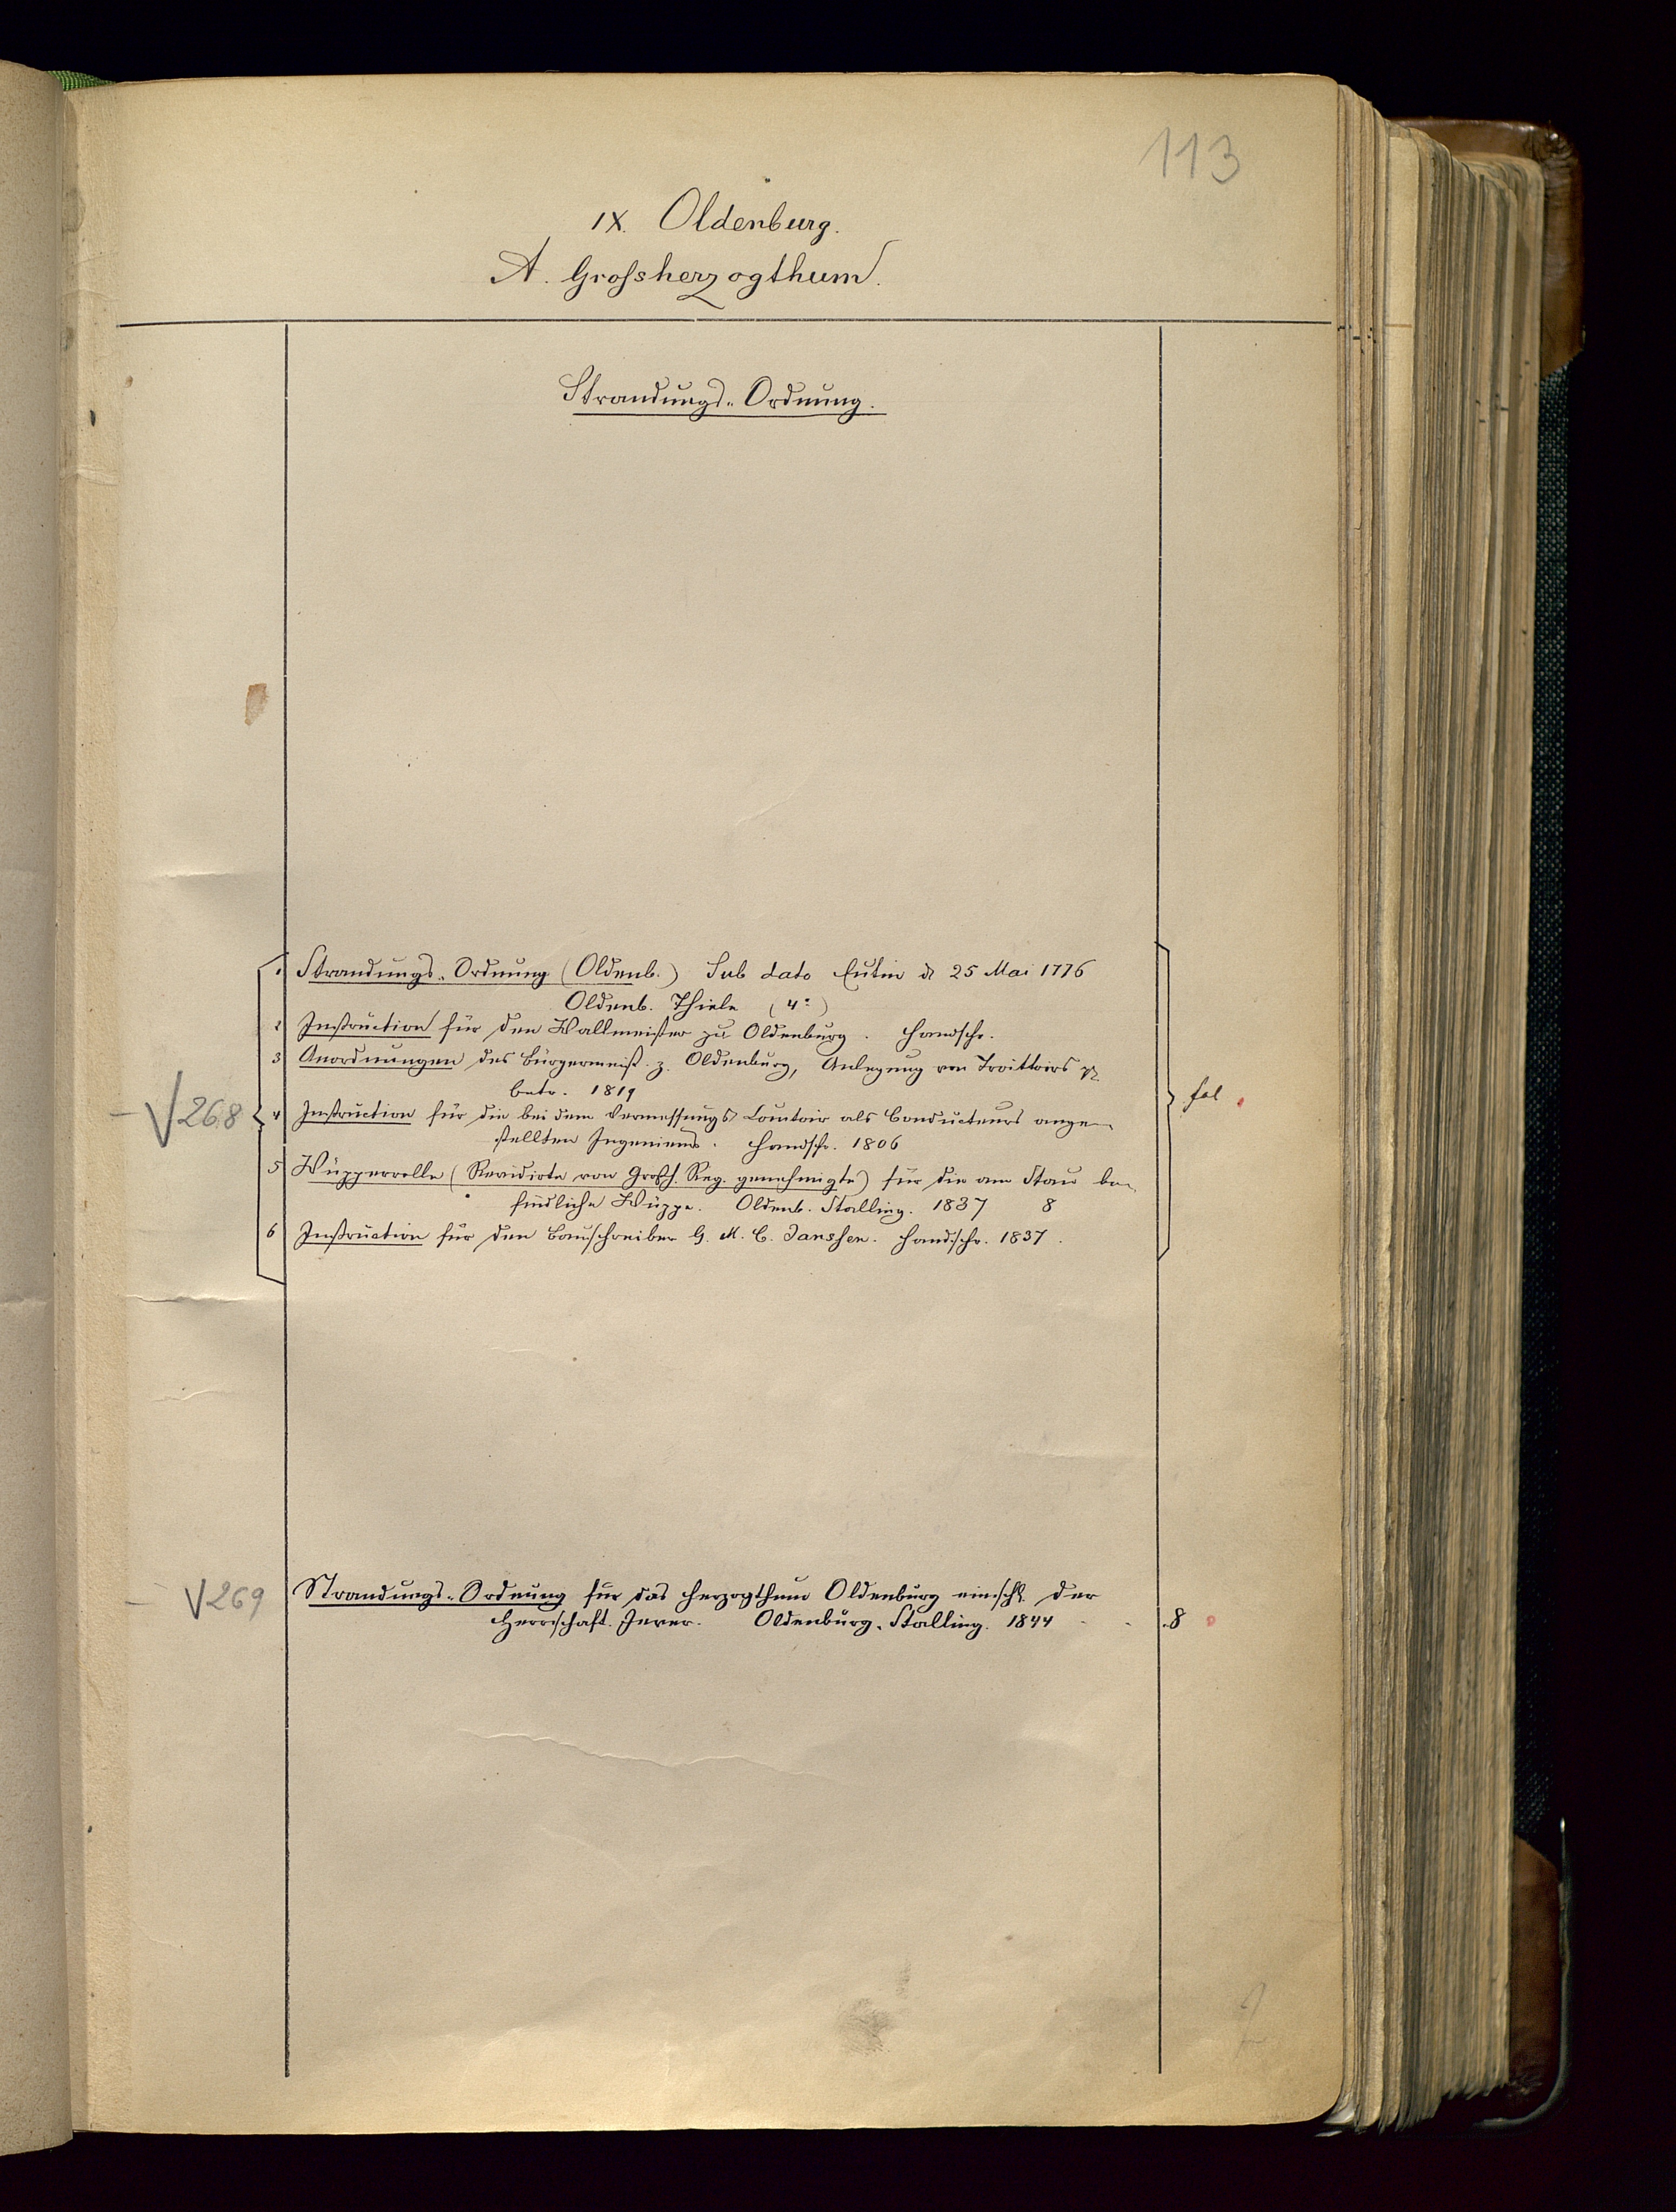 113
IX. Oldenburg.
A. Grossherzogthum.
Strandungs-Ordnung.
1 Strandungs-Ordnung (Oldenb.) Sub dato Eutin d. 25 Mai 1776
Oldenb. Thiele (4°)
2 Instruction für den Wallmeister zu Oldenburg. Handschr.
3 Anordnungen des Bürgermeist. z. Oldenburg, Anlegung von Troittoirs
betr. 1819
V268
4 Instruction für die bei dem Vermessungs Comtoir als Conducteurs ange-
stellten Ingenieurs. Handschr. 1806
fol.
5 Wüpperrolle (Revidirte von Grossh. Reg. genehmigte) für die am Stau be-
findliche Wüppe. Oldenb. Stalling. 1837 8
6 Instruction für den Bauschreiber G. M. C. Janssen. Handschr. 1837.
V269
Strandungs-Ordnung für das Herzogthum Oldenburg einschl. der
Herrschaft Jever. Oldenburg. Stalling. 1844 8